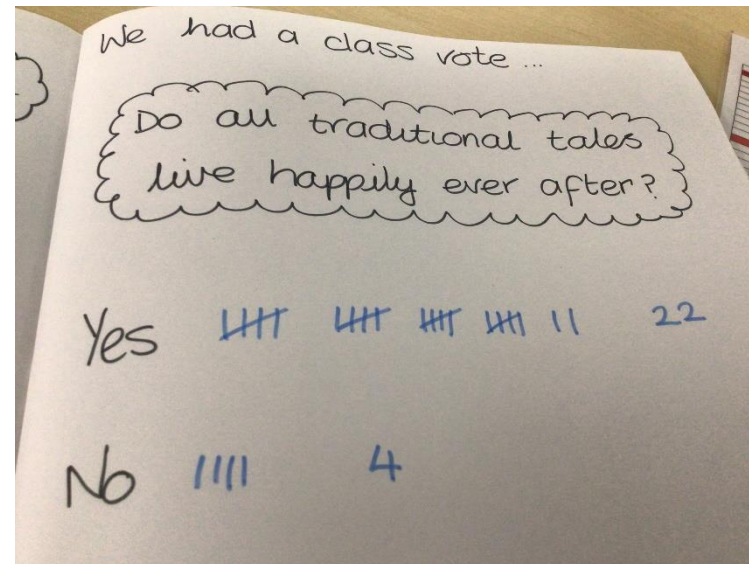 We had a class vote ...
Do all traditional tales
live happily ever after?
Yes 22
No 4